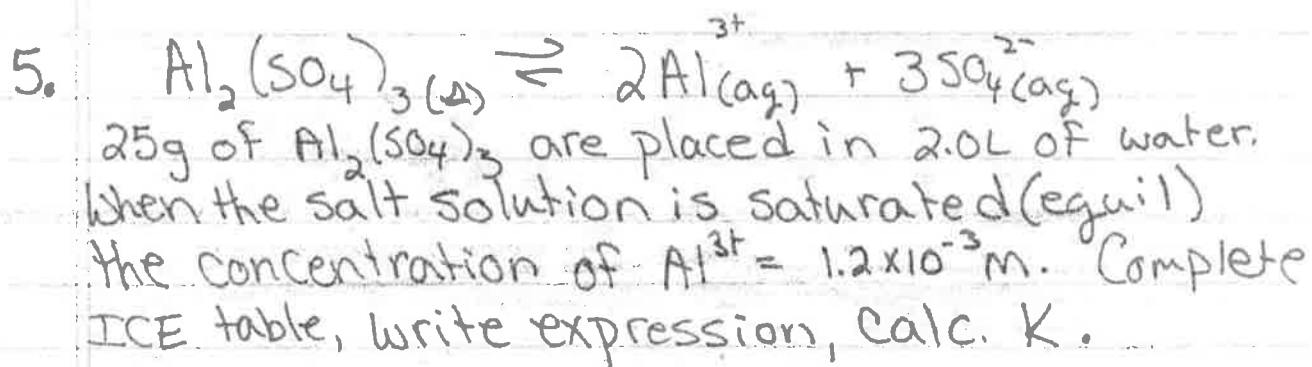 5. Al₂(SO₄)₃(s) ⇌ 2Al³⁺(aq) + 3SO₄²⁻(aq)
25g of Al₂(SO₄)₃ are placed in 2.0L of water.
When the salt solution is saturated (equil)
the concentration of Al³⁺ = 1.2x10⁻³m. Complete
ICE table, write expression, calc. K.